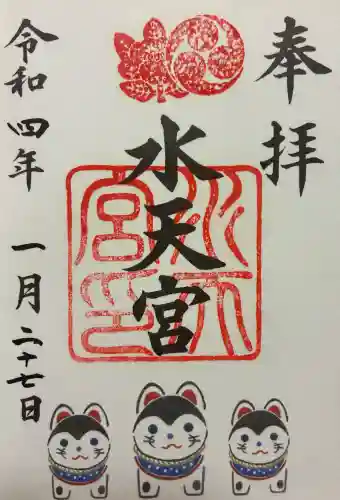 奉拝
水天宮
令和四年 一月二十七日
水天宮印